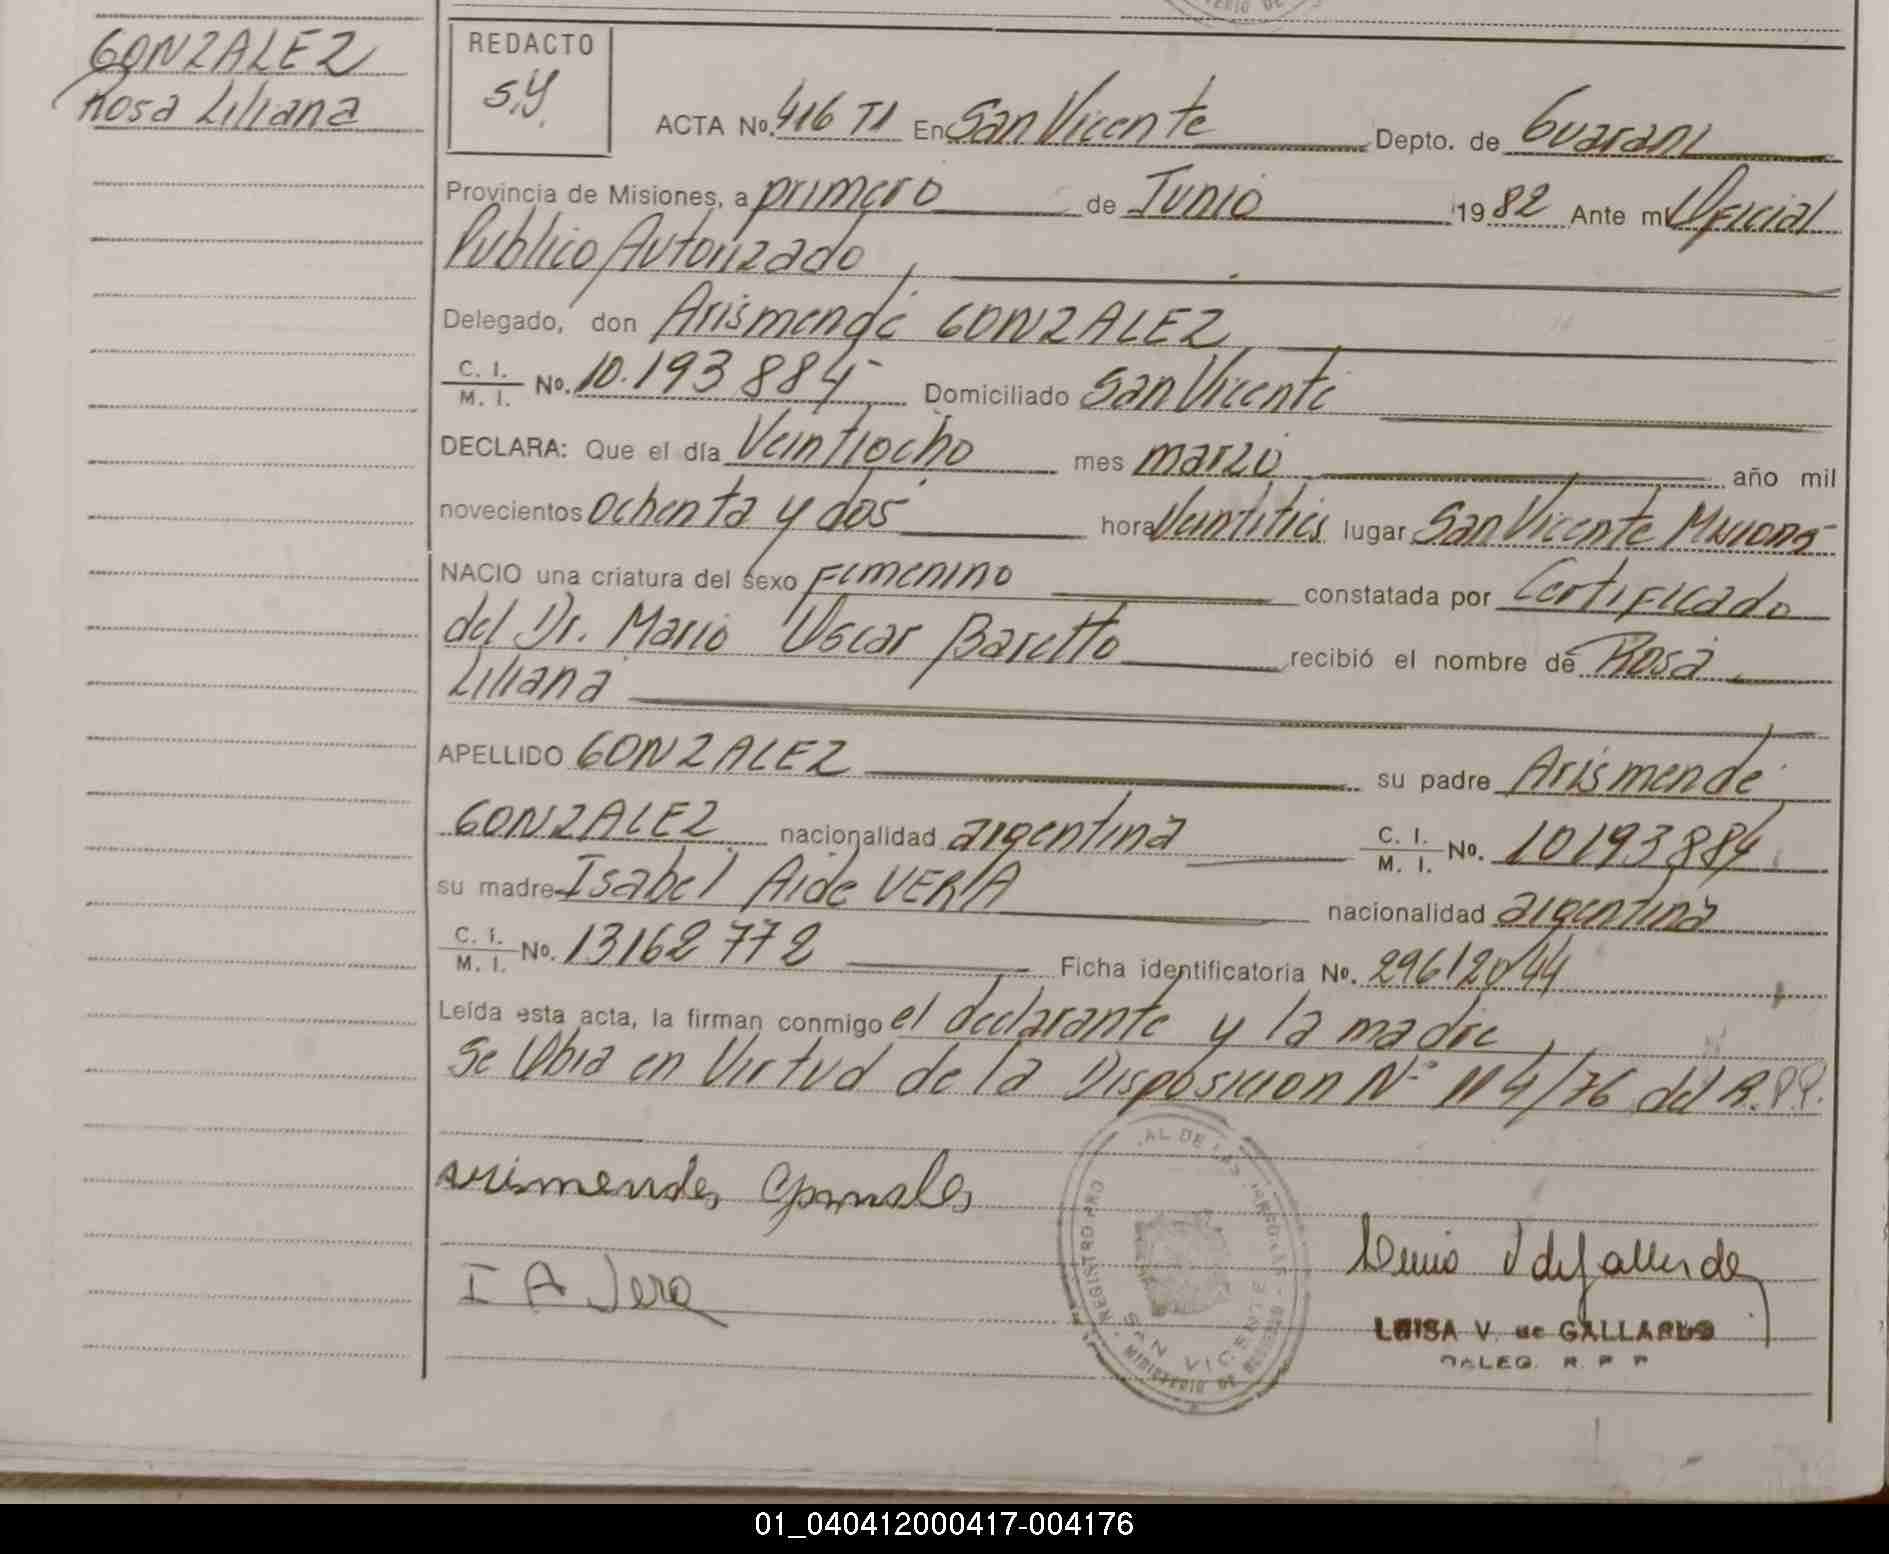 GONZALEZ
Rosa Liliana
REDACTO
S.Y.
ACTA No. 416 T1 En San Vicente Depto. de Guarani
Provincia de Misiones, a primero de Junio 1982 Ante mi Oficial
Publico Autorizado,
Delegado, don Arismende GONZALEZ
C. I. / M. I. No. 10.193884 Domiciliado San Vicente
DECLARA: Que el día Veintiocho mes marzo año mil
novecientos ochenta y dos hora Veintitres lugar San Vicente Misiones
NACIO una criatura del sexo femenino constatada por Certificado
del Dr. Mario Oscar Baretto recibió el nombre de Rosa
Liliana
APELLIDO GONZALEZ su padre Arismende
GONZALEZ nacionalidad argentina C. I. / M. I. No. 10193884
su madre Isabel Aide VERA nacionalidad argentina
C. I. / M. I. No. 13162772 Ficha identificatoria No. 29612044
Leída esta acta, la firman conmigo el declarante y la madre,
Se Obra en Virtud de la Disposicion Nº 114/76 del R.P.P.
arismendes Gonsales
I A Vera
REGISTRO PRO AL DE LAS PERSONAS
SAN VICENTE
MINISTERIO DE GOBIERNO
LUISA V. de GALLARDO
DALEG. R. P. P.
01_040412000417-004176